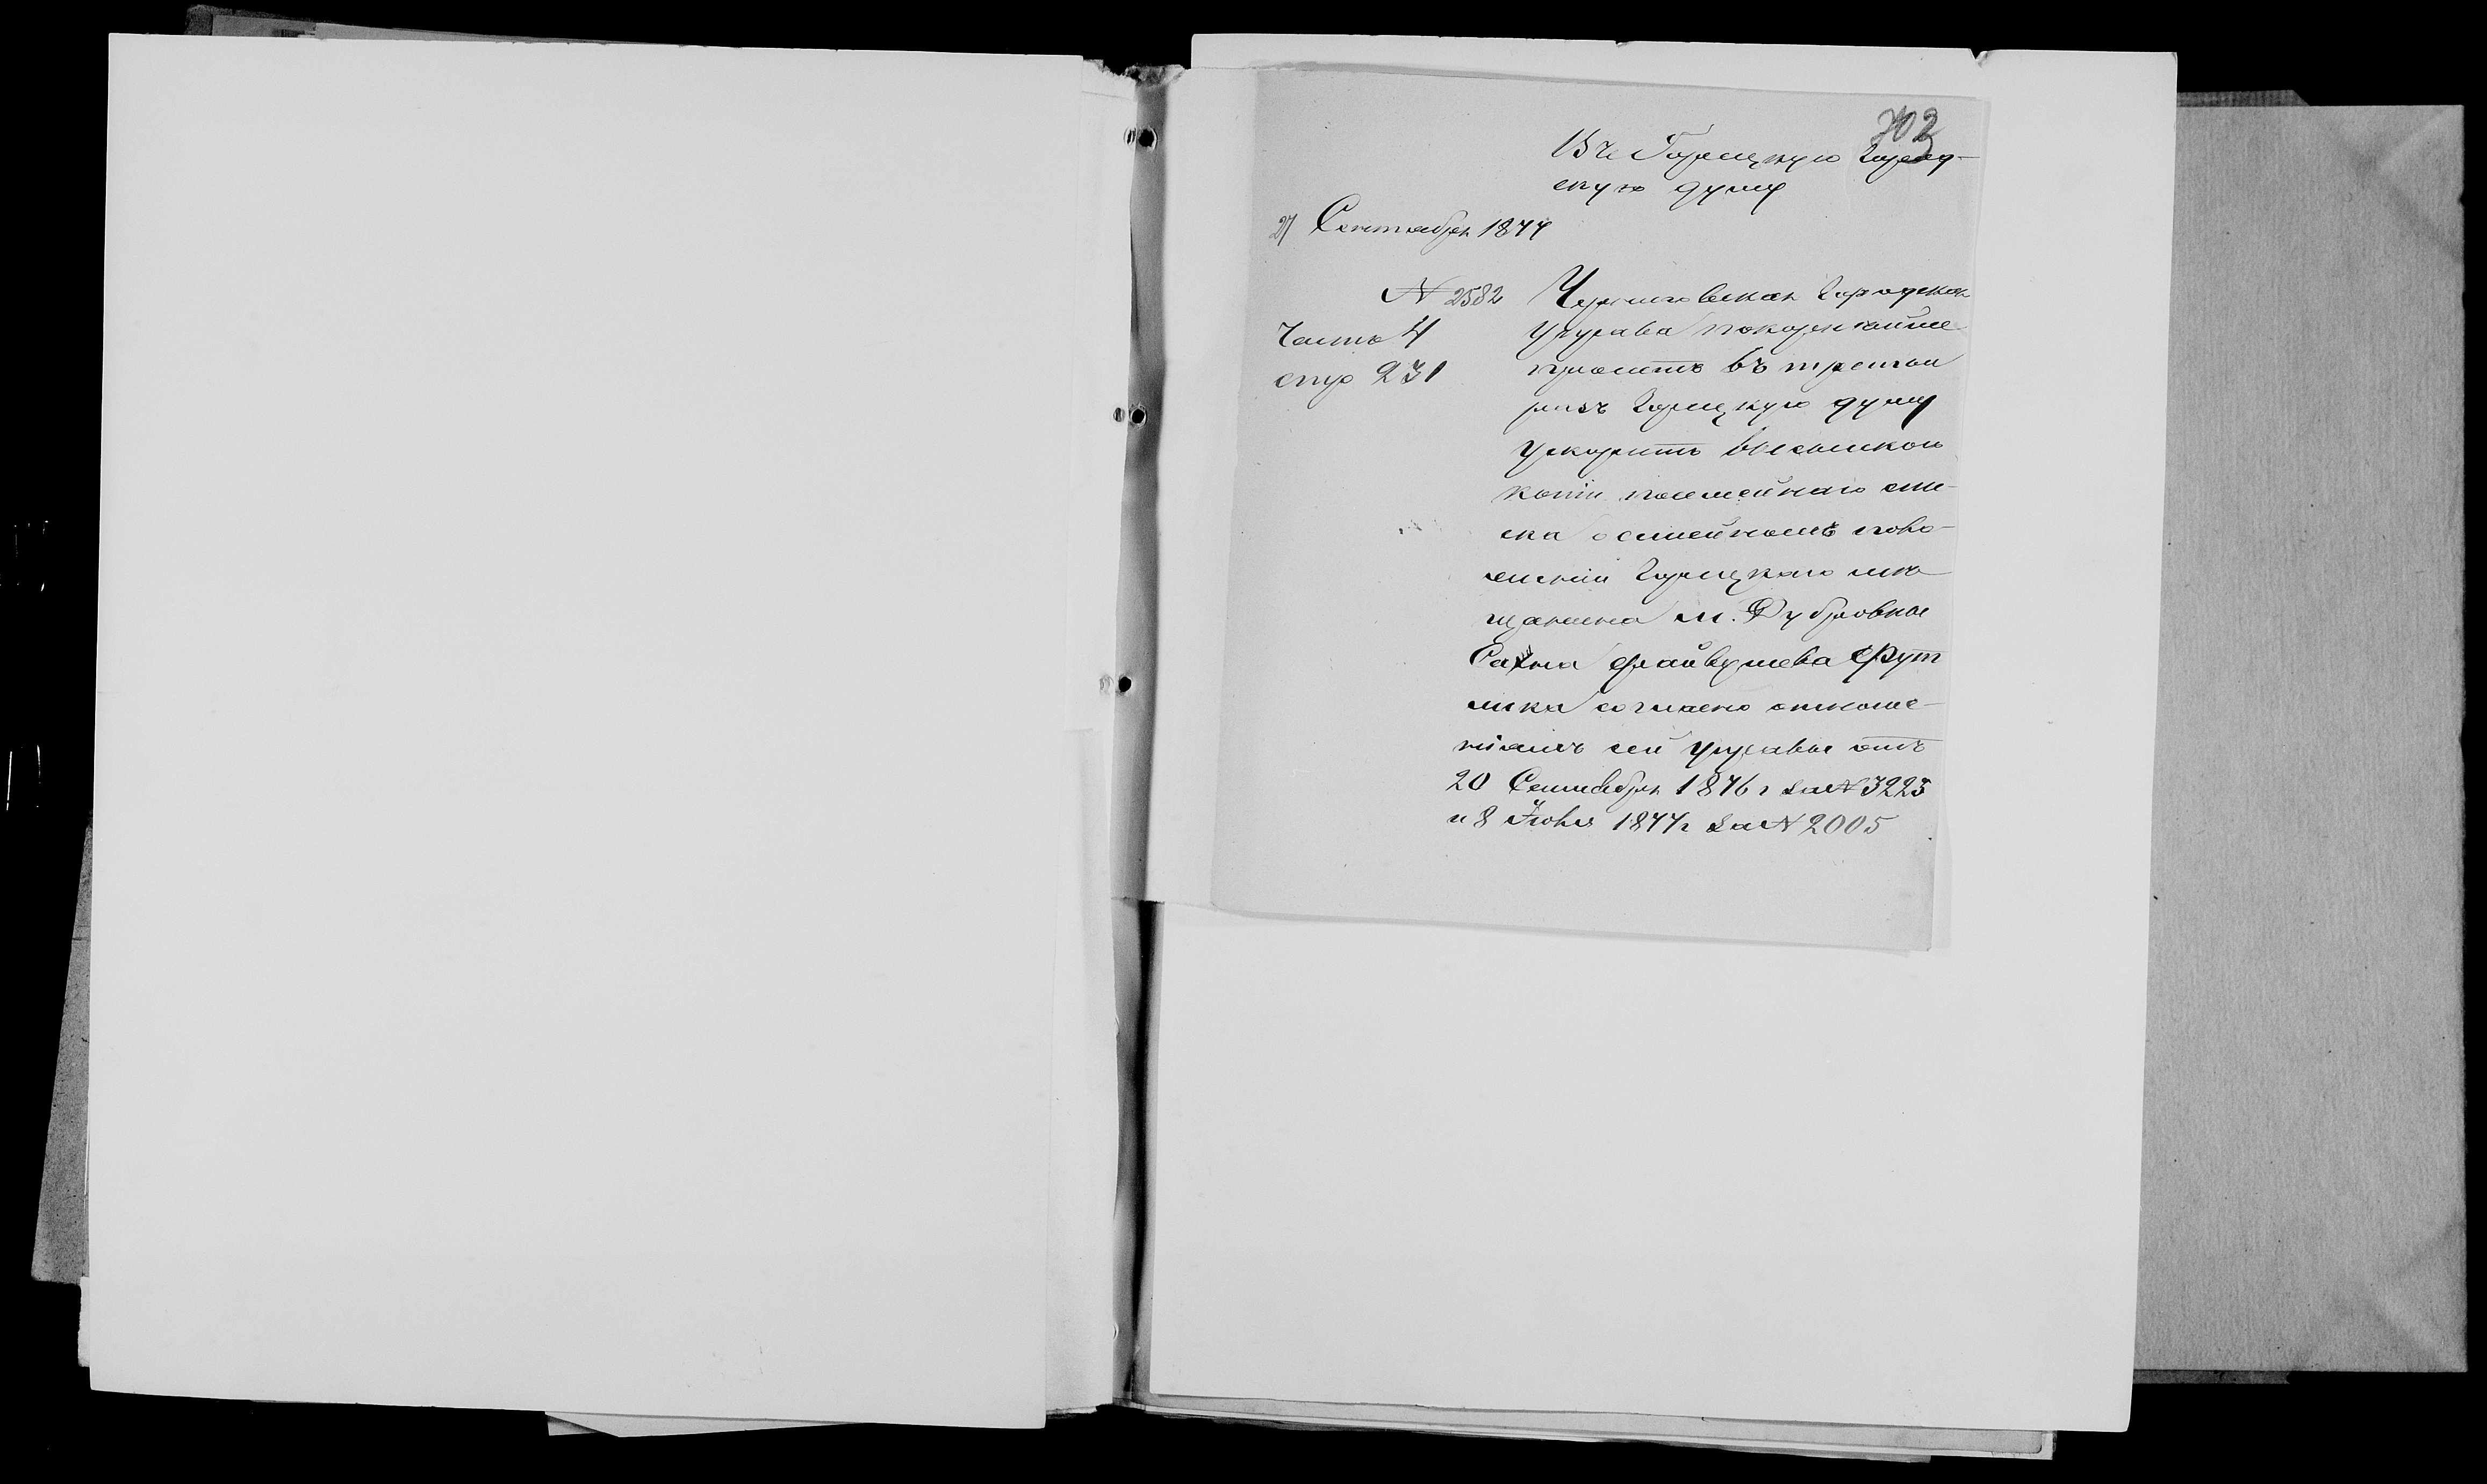 702
Въ Горецкую Город-
скую думу
27 Сентября 1877
№ 2582
Часть 4
стр 231
Черниговская Городская
Управа покорнейше
просить въ третий
разъ Горецкую думу
ускорить высылкою
копіи посемейнаго спи-
ска о семейномъ поло-
женіи Горецкаго мѣ-
щанина м. Дубровны
Файвушева Фут
лика согласно отноше-
ніямъ сей управы отъ
20 Сентября 1876 г за № 3223
и 8 Іюля 1877 г за № 2005